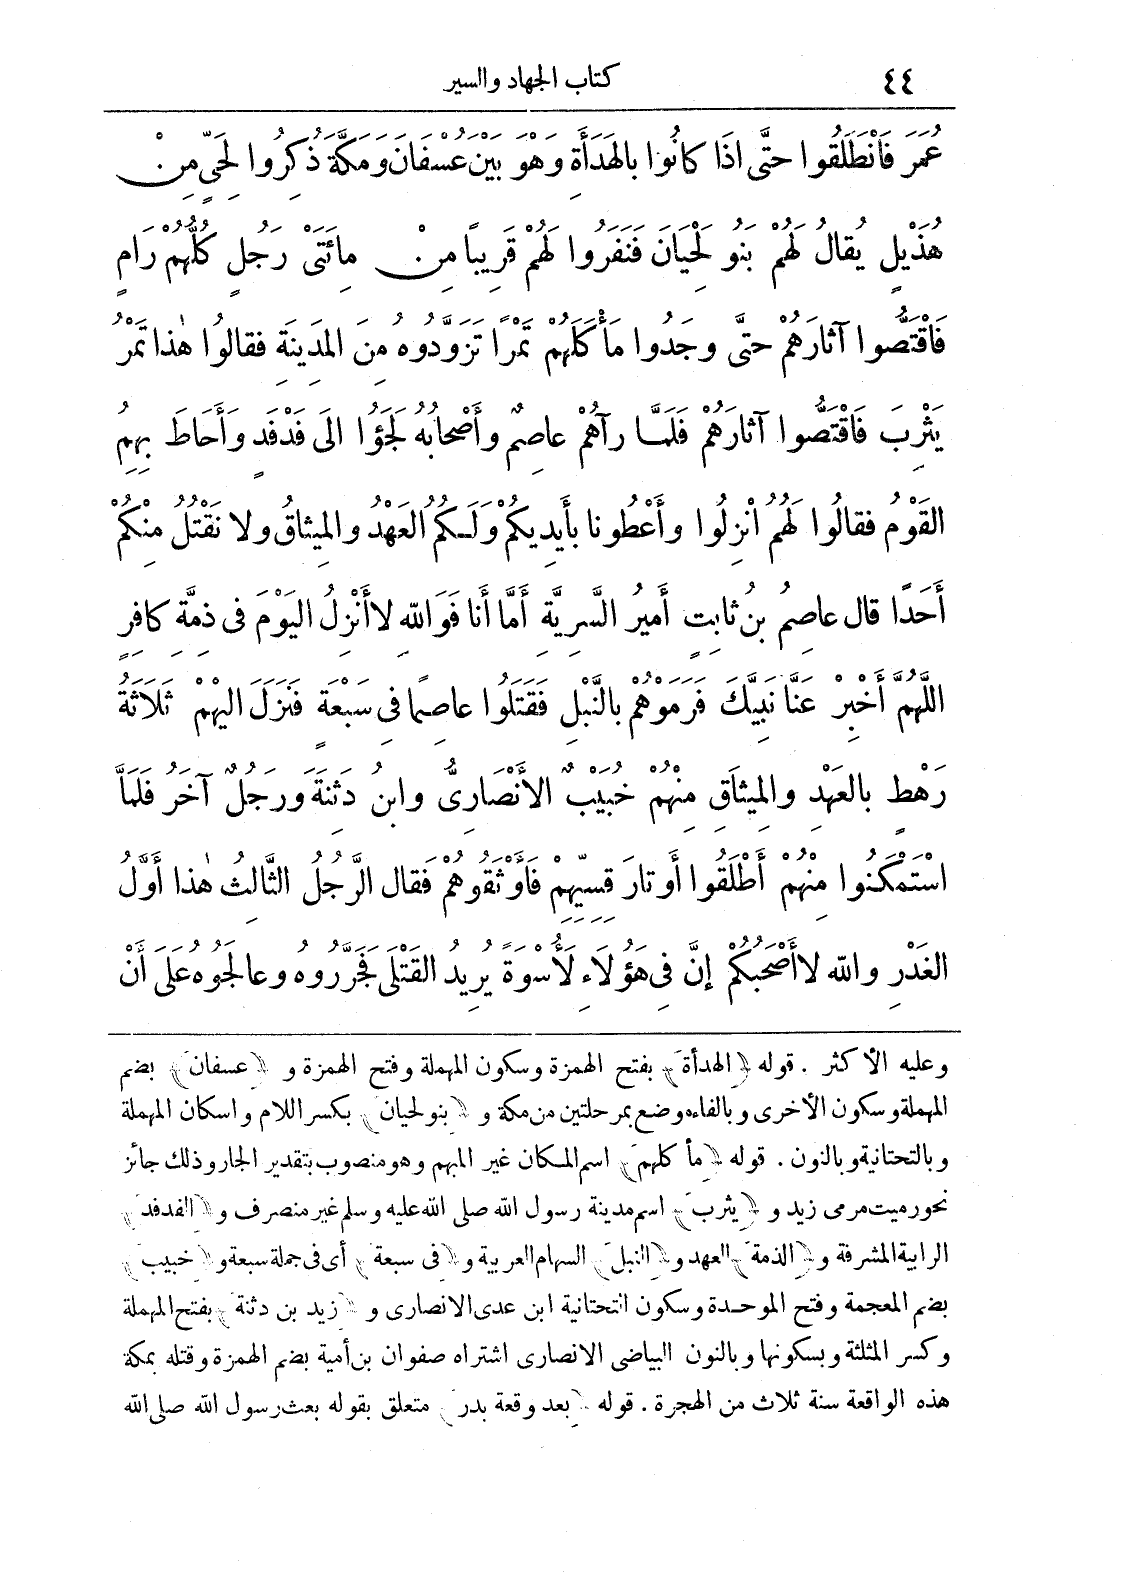 ٤٤ كتاب الجهاد والسير
عُمَرَ فَانْطَلَقُوا حتَّى اذَا كانُوا بالهَدَأَةِ وَهْوَ بَيْنَ عُسْفَانَ وَمَكَّةَ ذُكِرُوا لِحَيٍّ مِنْ
هُذَيْلٍ يُقالُ لَهُمْ بَنُو لَحْيَانَ فَنَفَرُوا لَهُمْ قَرِيبًا مِنْ مِائَتَىْ رَجُلٍ كُلُّهُمْ رَامٍ
فَاقْتَصُّوا آثارَهُمْ حتَّى وجَدُوا مَأْكَلَهُمْ تَمْرًا تَزَوَّدُوهُ مِنَ المَدِينَةِ فقالُوا هٰذا تَمْرُ
يَثْرِبَ فَاقْتَصُّوا آثارَهُمْ فَلَمَّا رآهُمْ عاصِمٌ وأَصْحابُهُ لَجَؤُا الىَ فَدْفَدٍ وَأَحَاطَ بِهِمُ
القَوْمُ فقالُوا لَهُمُ انْزِلُوا وأَعْطُونا بأَيْدِيكُمْ وَلَكُمُ العَهْدُ والمِيثاقُ ولا نَقْتُلُ مِنْكُمْ
أَحَدًا قال عاصِمُ بنُ ثابِتٍ أَمِيرُ السَّرِيَّةِ أَمَّا أَنا فَوَاللهِ لا أَنْزِلُ اليَوْمَ فى ذِمَّةِ كافِرٍ
اللَّهُمَّ أَخْبِرْ عَنَّا نَبِيَّكَ فَرَمَوْهُمْ بالنَّبْلِ فَقَتَلُوا عاصِمًا فى سَبْعَةٍ فَنَزَلَ اليْهِمْ ثَلَاثَةُ
رَهْطٍ بالعَهْدِ والمِيثاَقِ مِنْهُمْ خُبَيْبٌ الأَنْصَارِىُّ وابنُ دَثِنَةَ ورَجُلٌ آخَرُ فَلَمَّا
اسْتَمْكَنُوا مِنْهُمْ أَطْلَقُوا أَوتارَ قِسِيِّهِمْ فَأَوْثَقُوهُمْ فقال الرَّجُلُ الثَّالِثُ هٰذا أَوَّلُ
الغَدْرِ والله لا أَصْحَبُكُمْ إنَّ فِى هَؤُلَاءِ لَأُسْوَةً يُرِيدُ القَتْلَى فَجَرَّرُوهُ وعالَجُوهُ عَلَى أَنْ
وعليه الأكثر . قوله ﴿الهدأة﴾ بفتح الهمزة وسكون المهملة وفتح الهمزة و ﴿عسفان﴾ بضم
المهملة وسكون الأخرى وبالفاء موضع بمرحلتين من مكة و ﴿بنو لحيان﴾ بكسر اللام واسكان المهملة
وبالتحتانية وبالنون . قوله ﴿مأكلهم﴾ اسم المكان غير المبهم وهو منصوب بتقدير الجار وذلك جائز
نحو رميت مرمى زيد و ﴿يثرب﴾ اسم مدينة رسول الله صلى الله عليه وسلم غير منصرف و ﴿الفدفد﴾
الرابية المشرفة و ﴿الذمة﴾ العهد و ﴿النبل﴾ السهام العربية و ﴿فى سبعة﴾ أى فى جملة سبعة و ﴿خبيب﴾
بضم المعجمة وفتح الموحدة وسكون التحتانية ابن عدى الانصارى و ﴿زيد بن دثنة﴾ بفتح المهملة
وكسر المثلثة وبسكونها وبالنون البياضى الانصارى اشتراه صفوان بن أمية بضم الهمزة وقتله بمكة
هذه الواقعة سنة ثلاث من الهجرة . قوله ﴿بعد وقعة بدر﴾ متعلق بقوله بعث رسول الله صلى الله